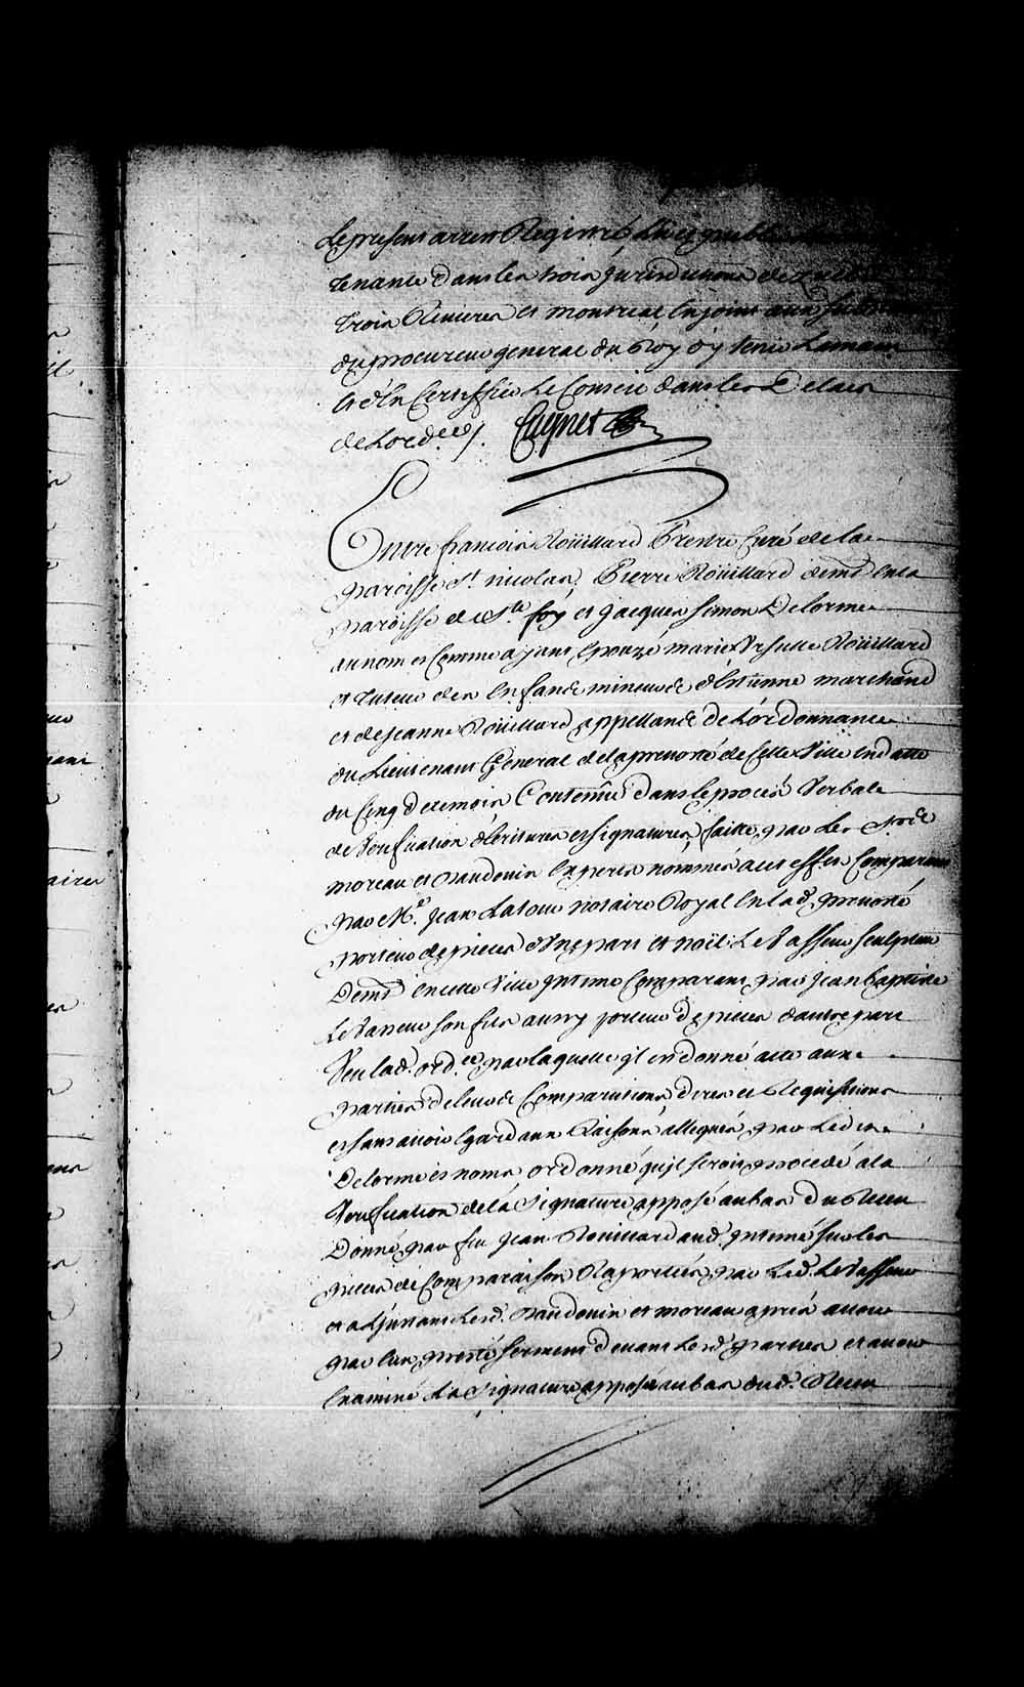 Le present arrest Registré Lu et publié
tenante dans les trois Jurisdictions de Quebec
trois Rivieres et montreal Enjoint aux Subst
du procureur general du Roy d'y tenir La main
Et d'En Certiffier Le Conseil dans les Delais
de Lord.ces /. Cugnet
Entre francois Roüillard Prestre Curé de la
paroisse St. nicolas, Pierre Roüillard demt. en la
paroisse de Ste. foy et Jacques Simon Delorme
au nom et Comme ayant Epouzé marie Ursulle Roüillard
et tuteur des Enfants mineurs d'Estienne marchand
et de Jeanne Roüillard appellants de L'ordonnance
du Lieutenant General de la prevosté de Cette Ville En datte
du Cinq de ce mois Contenüe dans le procès Verbal
de Verification d'Ecritures et signatures, faitte, par Les Srs.
moreau et Baudouin Experts nommés a cet effet Comparant
par Me. Jean Latour notaire Royal En lad. prevosté
porteur de pieces d'Une part et noël Le Vasseur sculpteur
Demt. en cette Ville Intimé Comparant par Jean Baptiste
Le Vasseur son fils aussy porteur de pieces d'autre part
Veu lad. ord.ce par laquelle il est donné acte aux
parties de leurs Comparutions dires et Requisitions
et sans avoir Egard aux Raisons alleguées par Led. Sr.
Delorme ès noms, ordonné qu'il seroit procedé a la
Verification de la Signature apposé au bas du Recu
Donné par feu Jean Rouillard aud. Intimé sur les
pieces de Comparaison Raportées par Led. Le Vasseur
et a L'instant Lesd. Baudouin et moreau après avoir
par Eux presté serment devant Lesd. parties et avoir
Examiné La Signature apposée au bas dud. Recu